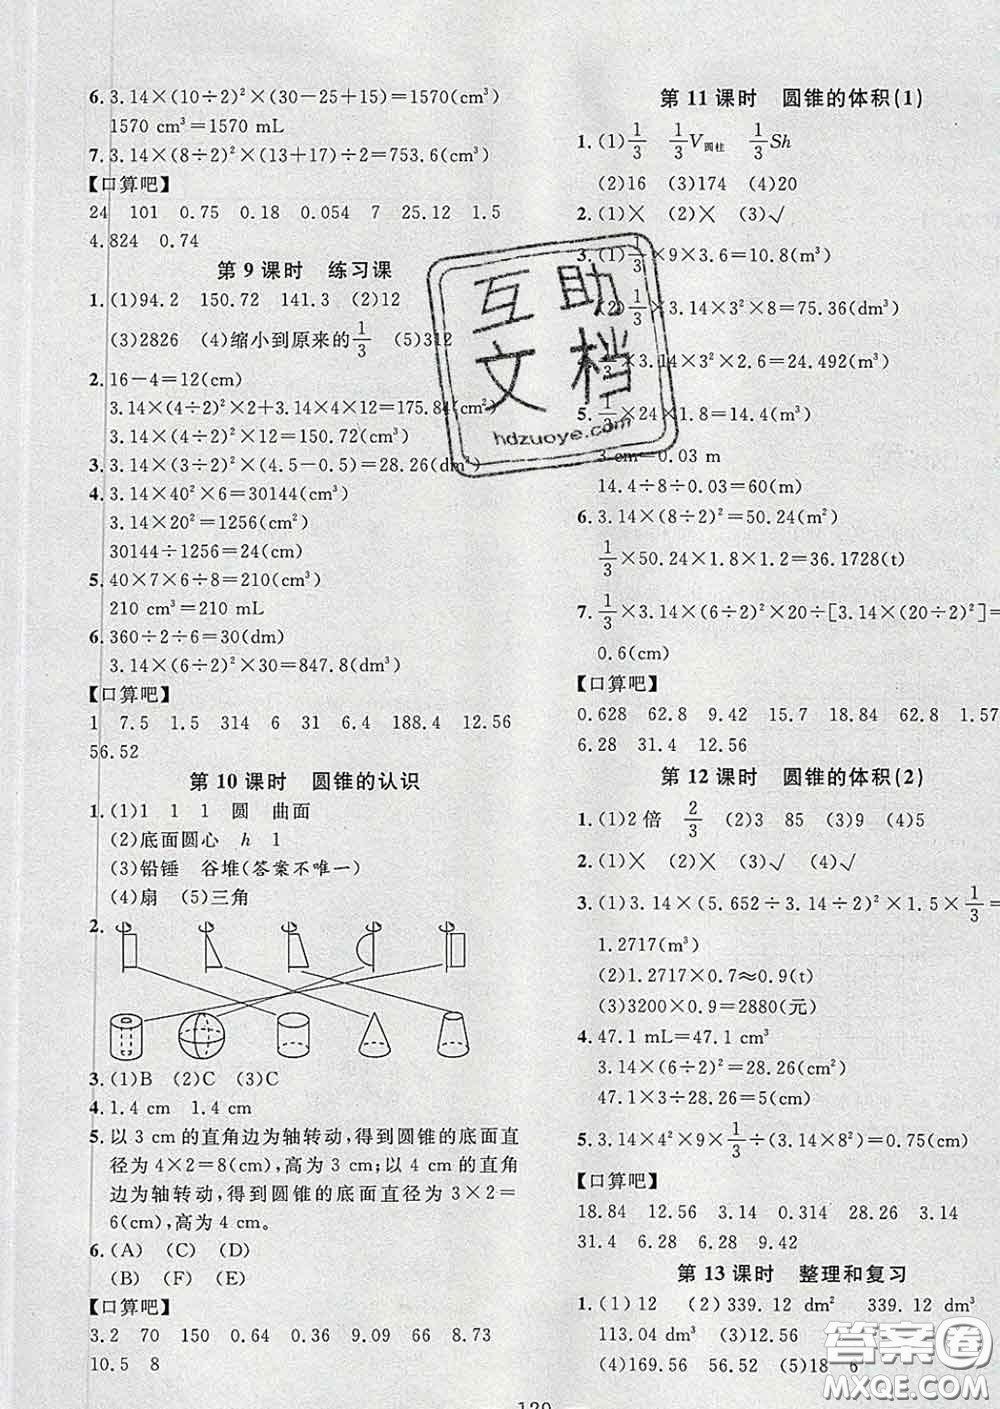 6. 3.14×(10÷2)²×(30－25＋15)＝1570(cm³)
1570 cm³＝1570 mL
7. 3.14×(8÷2)²×(13＋17)÷2＝753.6(cm³)
【口算吧】
24 101 0.75 0.18 0.054 7 25.12 1.5
4.824 0.74
第 9 课时 练习课
1. (1)94.2 150.72 141.3 (2)12
(3)2826 (4)缩小到原来的1/3 (5)312
2. 16－4＝12(cm)
3.14×(4÷2)²×2＋3.14×4×12＝175.84(cm²)
3.14×(4÷2)²×12＝150.72(cm³)
3. 3.14×(3÷2)²×(4.5－0.5)＝28.26(cm³)
4. 3.14×40²×6＝30144(cm³)
3.14×20²＝1256(cm²)
30144÷1256＝24(cm)
5. 40×7×6÷8＝210(cm³)
210 cm³＝210 mL
6. 360÷2÷6＝30(dm)
3.14×(6÷2)²×30＝847.8(dm³)
【口算吧】
1 7.5 1.5 314 6 31 6.4 188.4 12.56
56.52
第 10 课时 圆锥的认识
1. (1)1 1 1 圆 曲面
(2)底面圆心 h 1
(3)铅锤 谷堆(答案不唯一)
(4)扇 (5)三角
2.
3. (1)B (2)C (3)C
4. 1.4 cm 1.4 cm
5. 以 3 cm 的直角边为轴转动,得到圆锥的底面直
径为 4×2＝8(cm),高为 3 cm;以 4 cm 的直角
边为轴转动,得到圆锥的底面直径为 3×2＝
6(cm),高为 4 cm。
6. (A) (C) (D)
(B) (F) (E)
【口算吧】
3.2 70 150 0.64 0.36 9.09 66 8.73
10.5 8
第 11 课时 圆锥的体积(1)
1. (1)1/3 1/3V圆柱 1/3Sh
(2)16 (3)174 (4)20
2. (1)× (2)× (3)√
3. (1)1/3×9×3.6＝10.8(m³)
(2)1/3×3.14×3²×8＝75.36(dm³)
×3.14×2²×6＝24.492(m³)
5. 1/3×24×1.8＝14.4(m³)
3 cm＝0.03 m
14.4÷8÷0.03＝60(m)
6. 3.14×(8÷2)²＝50.24(m²)
1/3×50.24×1.8×1.2＝36.1728(t)
7. 1/3×3.14×(6÷2)²×20÷[3.14×(20÷2)²]＝
0.6(cm)
【口算吧】
0.628 62.8 9.42 15.7 18.84 62.8 1.57
6.28 31.4 12.56
第 12 课时 圆锥的体积(2)
1. (1)2倍 2/3 (2)3 85 (3)9 (4)5
2. (1)× (2)× (3)√ (4)√
3. (1)3.14×(5.652÷3.14÷2)²×1.5×1/3＝
1.2717(m³)
(2)1.2717×0.7≈0.9(t)
(3)3200×0.9＝2880(元)
4. 47.1 mL＝47.1 cm³
3.14×(6÷2)²＝28.26(cm²)
47.1×3÷28.26＝5(cm)
5. 3.14×4²×9×1/3÷(3.14×8²)＝0.75(cm)
【口算吧】
18.84 12.56 3.14 0.314 28.26 3.14
31.4 6.28 6.28 9.42
第 13 课时 整理和复习
1. (1)12 (2)339.12 dm² 339.12 dm³
113.04 dm³ (3)12.56
(4)169.56 56.52 (5)18 6
互助
文档
hdzuoye.com
答案圈
MXQE.COM